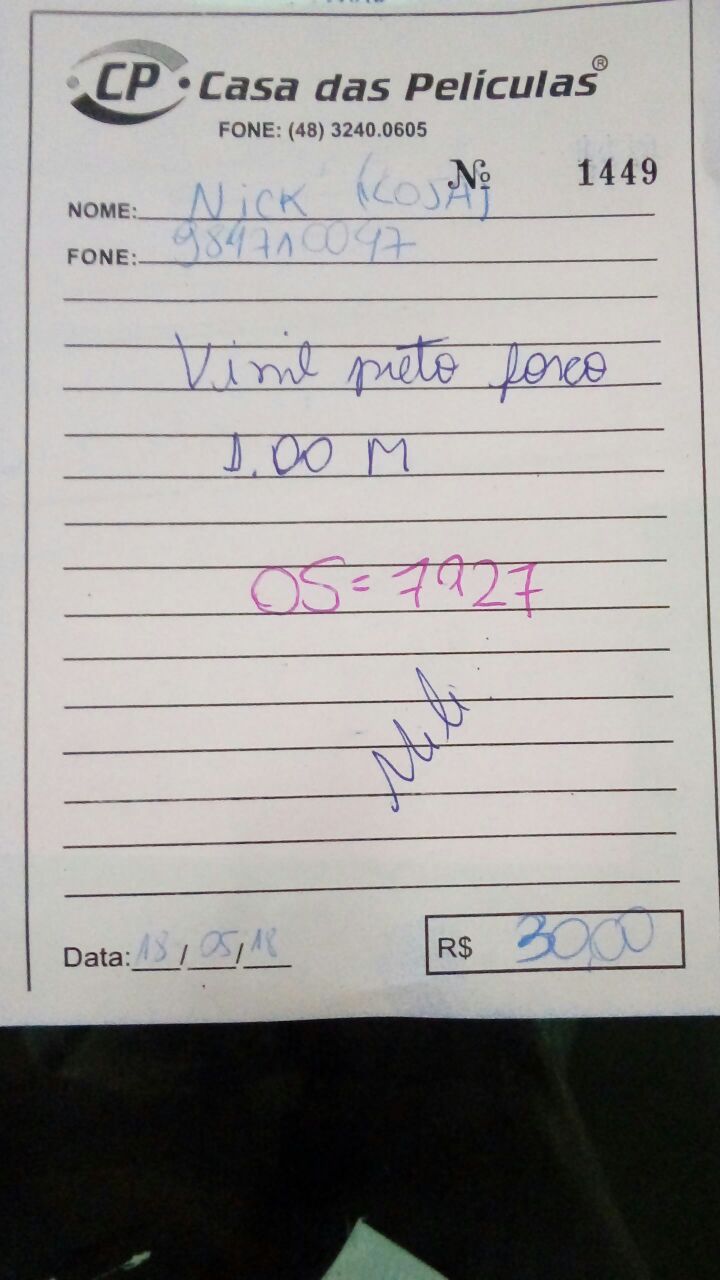 CP Casa das Películas®
FONE: (48) 3240.0605
Nº 1449
NOME: Nick
FONE: 984710047
Vinil preto fosco
1.00 M
OS = 7927
Data: 18/05/18
R$ 30,00